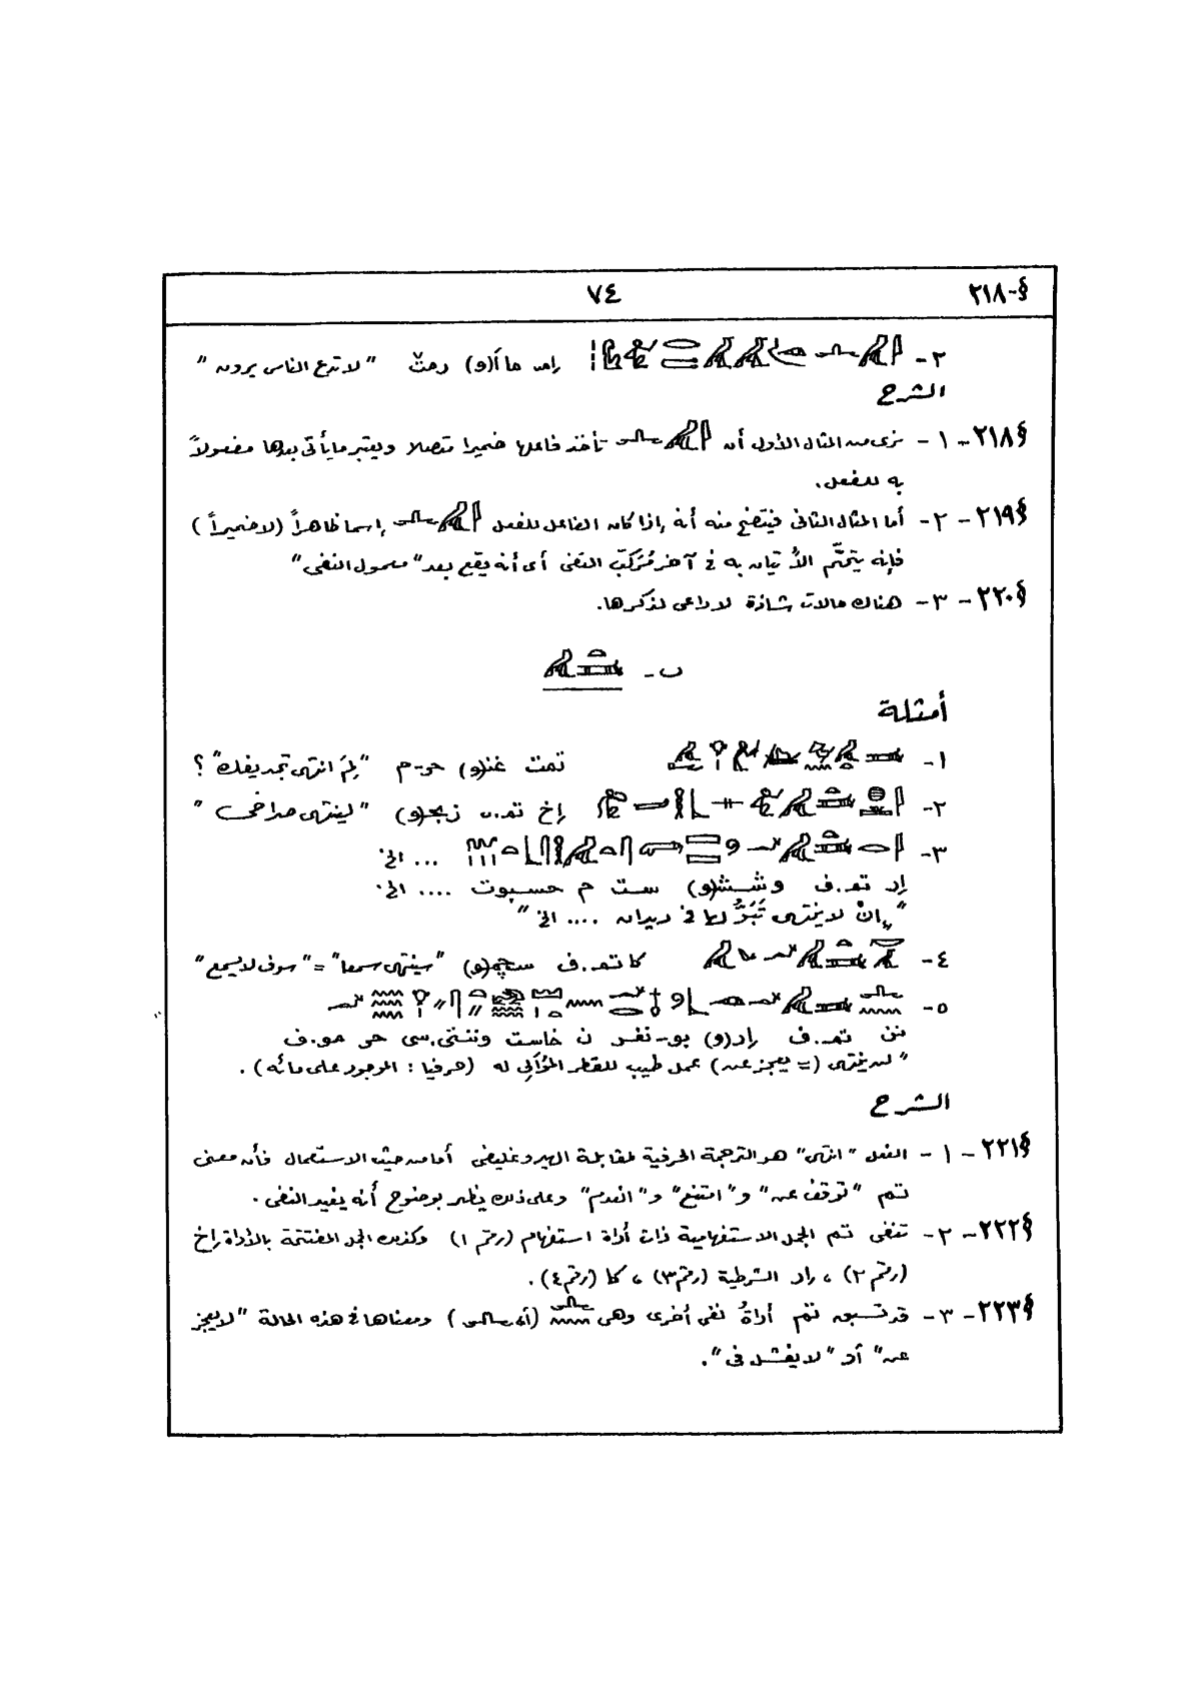 §-٢١٨ ٧٤
٢- إم ماأ(و) رمث "لا تدع الناس يرون"
الشرح
§٢١٨-١- نرى من المثال الأول أن تأخذ فاعلها ضميرا متصلا ويعتبر ما يأتى بعدها مفعولاً
به للفعل.
§٢١٩-٢- أما المثال الثانى فيتضح منه أنه إذا كان الفاعل للفعل إسما ظاهراً (لا ضميراً)
فإنه يتحتّم الأتيان به فى آخر مُرَكّب النفى أى أنه يقع بعد "معمول النفى"
§٢٢٠-٣- هناك حالات شاذة لا داعى لذكرها.
ب-
أمثلة
١- تمت غن(و) حر-م "لِمَ انتهى تجديفك"؟
٢- إخ تم.ى "لينتهى صراخى"
٣- ... الخ
إر تم.ف وشش(و) ست م حسبوت .... الخ
"إنْ لا ينتهى تَبَوُّلها فى ديدان .... الخ"
٤- كا تم.ف سچم(و) "سينتهى سمعا" = "سوف لا يسمع"
٥-
نن تم.ف إر(و) بو-نفر ن خاست وننتى.سى حر مو.ف
"لن ينتهى (= يعجز عن) عمل طيب للقطر المُوَالِى له (حرفيا : الموجود على مائه).
الشرح
§٢٢١-١- الفعل "انتهى" هو الترجمة الحرفية لمقابلة الهيروغليفى أما من حيث الاستعمال فأنه معنى
تم "توقف عن" و"امتنع" و"انعدم" وعلى ذلك يظهر بوضوح أنه يفيد النفى.
§٢٢٢-٢- تنفى تم الجمل الاستفهامية ذات أداة استفهام (رقم ١) وكذلك الجمل المفتتحة بالأداة إخ
(رقم ٢)، إر الشرطية (رقم ٣)، كا (رقم ٤).
§٢٢٣-٣- قد تسبق تم أداةُ نفى أخرى وهى (أى) ومعناها فى هذه الحالة "لا يعجز
عن" أو "لا يفشل فى".